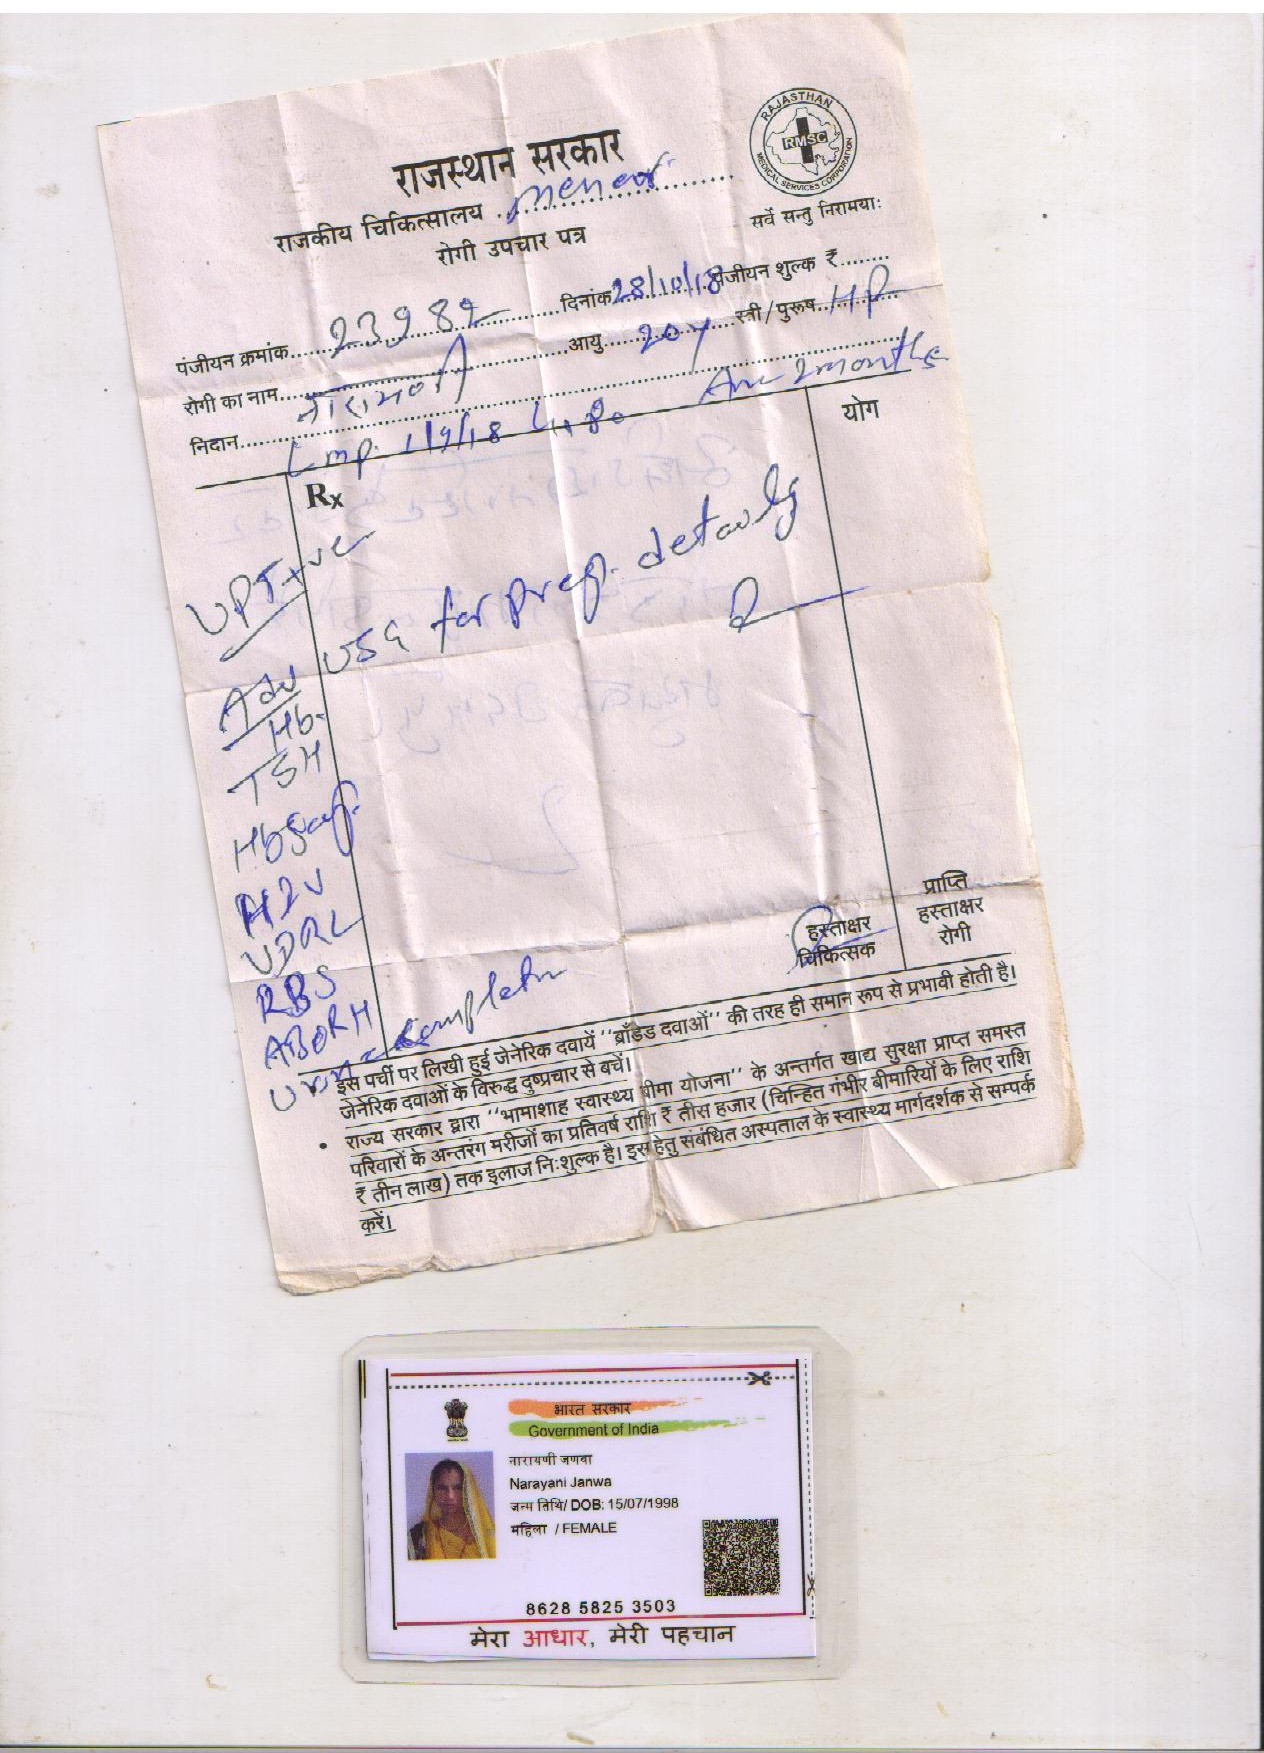 राजस्थान सरकार
RAJASTHAN
RMSC
MEDICAL SERVICES CORPORATION
राजकीय चिकित्सालय menar
सर्वे सन्तु निरामयाः
रोगी उपचार पत्र
पंजीयन क्रमांक 23982 दिनांक 28/10/18 पंजीयन शुल्क ₹
रोगी का नाम नारायणी आयु 20y स्त्री/पुरूष
निदान Anc 2 months
Lmp. 1/9/18
Rx
योग
UPT +ve
Adv USG for preg. details
Hb.
TSH
HbSag.
HIV
VDRL
RBS
ABORH
Urine complete
हस्ताक्षर
चिकित्सक
प्राप्ति
हस्ताक्षर
रोगी
इस पर्ची पर लिखी हुई जेनेरिक दवायें "ब्राँडेड दवाओं" की तरह ही समान रूप से प्रभावी होती है।
जेनेरिक दवाओं के विरुद्ध दुष्प्रचार से बचें।
• राज्य सरकार द्वारा "भामाशाह स्वास्थ्य बीमा योजना" के अन्तर्गत खाद्य सुरक्षा प्राप्त समस्त
परिवारों के अन्तरंग मरीजों का प्रतिवर्ष राशि ₹ तीस हजार (चिन्हित गंभीर बीमारियों के लिए राशि
₹ तीन लाख) तक इलाज निःशुल्क है। इस हेतु संबंधित अस्पताल के स्वास्थ्य मार्गदर्शक से सम्पर्क
करें।
भारत सरकार
Government of India
नारायणी जणवा
Narayani Janwa
जन्म तिथि/ DOB: 15/07/1998
महिला / FEMALE
8628 5825 3503
मेरा आधार, मेरी पहचान